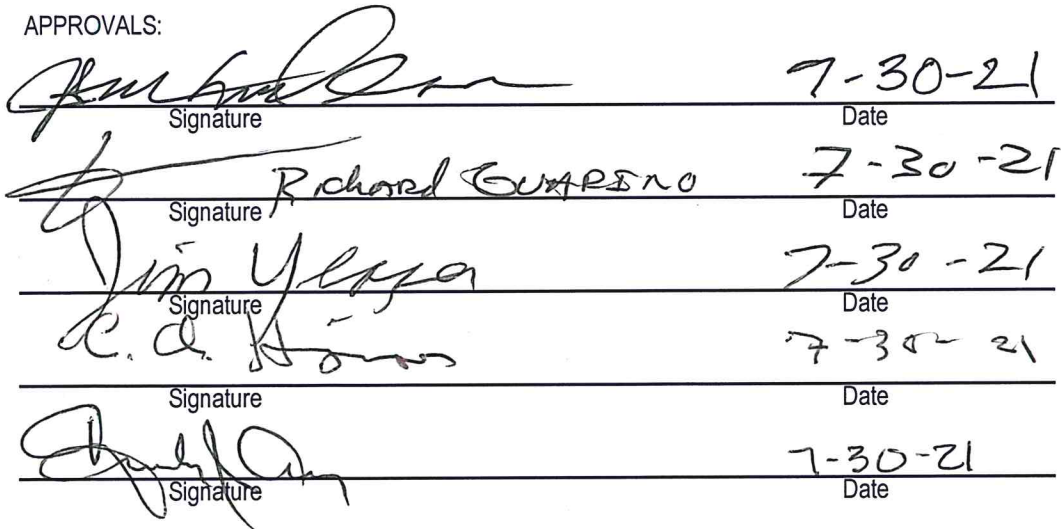 APPROVALS:
7-30-21
Signature Date
Richard GUARINO 7-30-21
Signature Date
Jim 7-30-21
Signature Date
C. A. 7-30-21
Signature Date
7-30-21
Signature Date